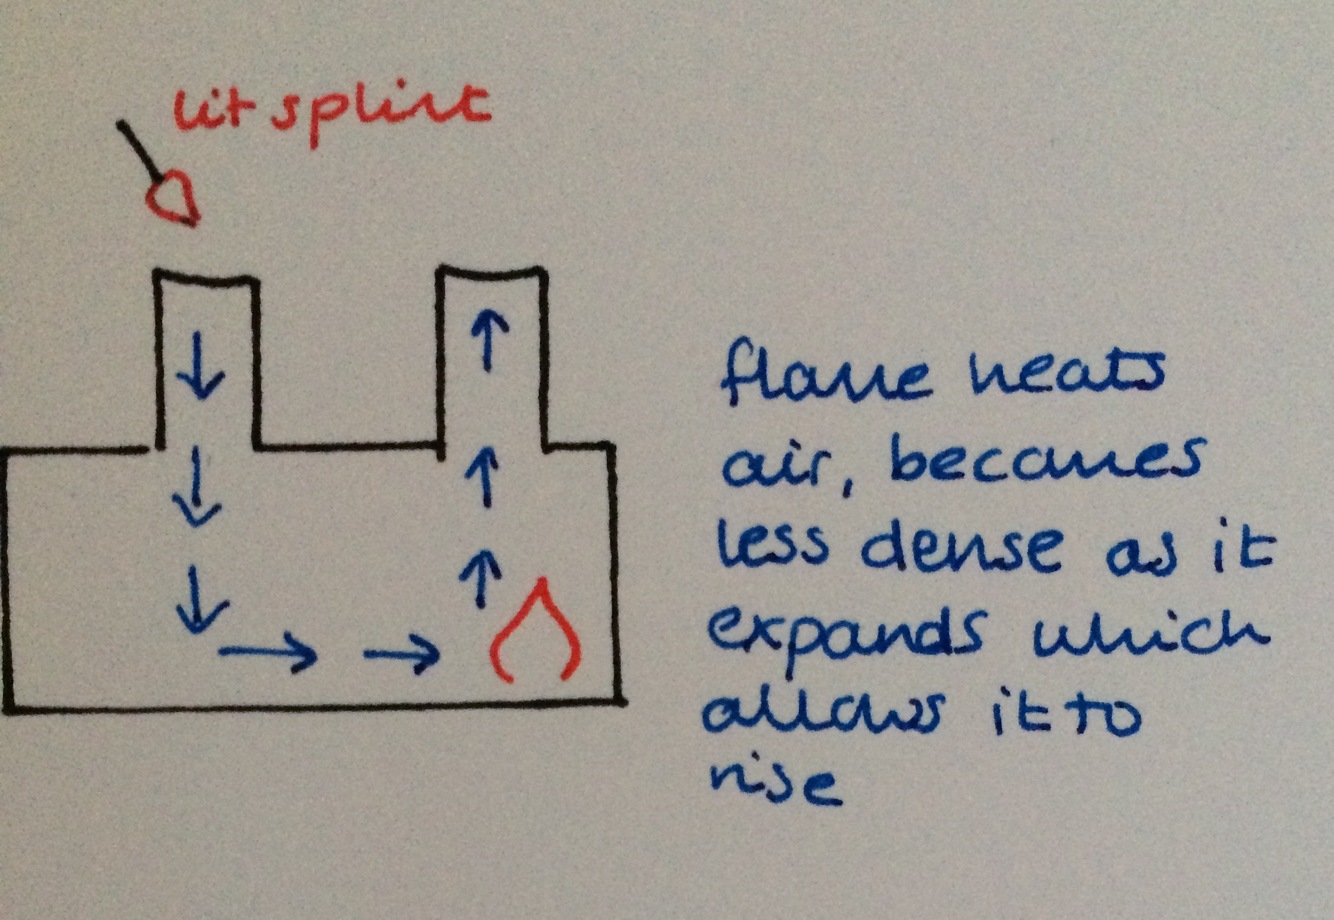 lit splint
flame heats
air, becomes
less dense as it
expands which
allows it to
rise